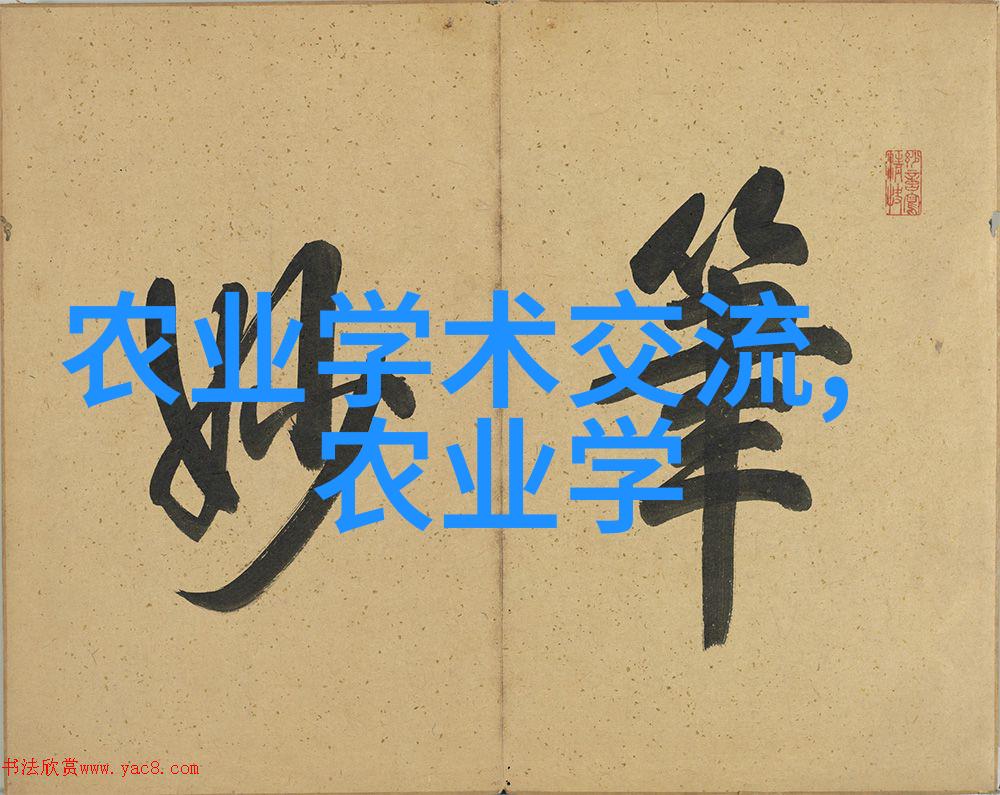 筆妙
农业学术交流,
农业学
书法欣赏www.yac8.com